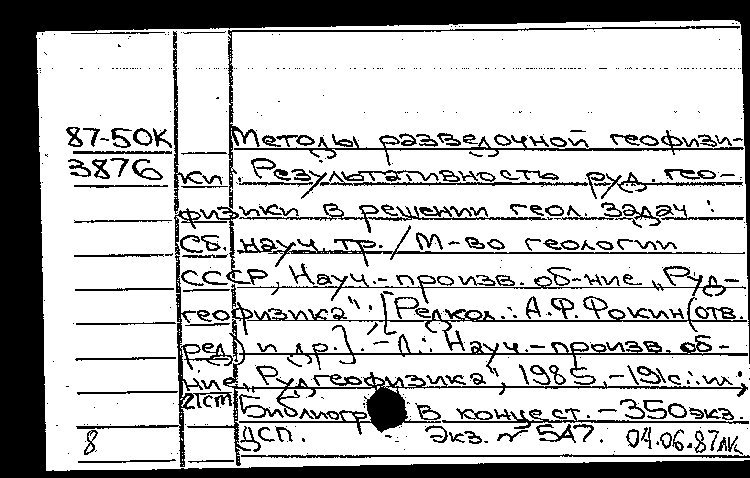 87-50К Методы разведочной геофизи-
3876 ки. Результативность руд. гео-
физики в решении геол. задач :
Сб. науч. тр. / М-во геологии
СССР, Науч.-произв. об-ние „Руд-
геофизика" ; [Редкол.: А.Ф. Фокин (отв.
ред.) и др.]. – Л.: Науч.-произв. об-
ние „Рудгеофизика", 1985. – 191с.: ил;
21см
Библиогр. в конце ст. – 350экз.
8 ДСП. Экз. № 547. 04.06.87